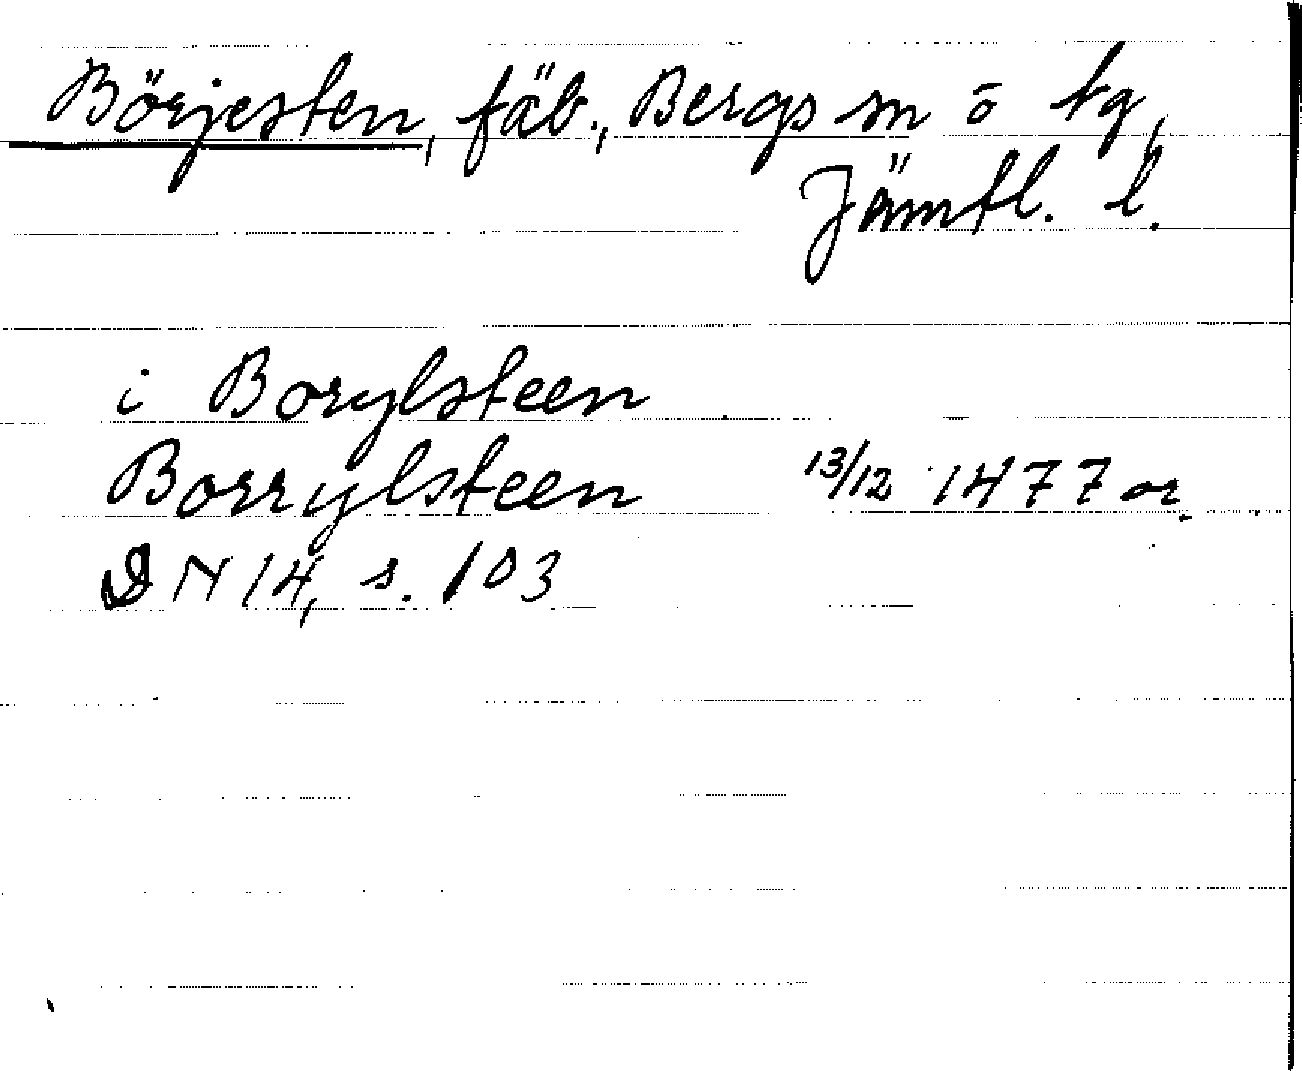 Börjesten, fäb., Bergs sn o tg,
Jämtl. l.
i Borylsteen
Borrylsteen 13/12 1477 or.
DN 14, s. 103